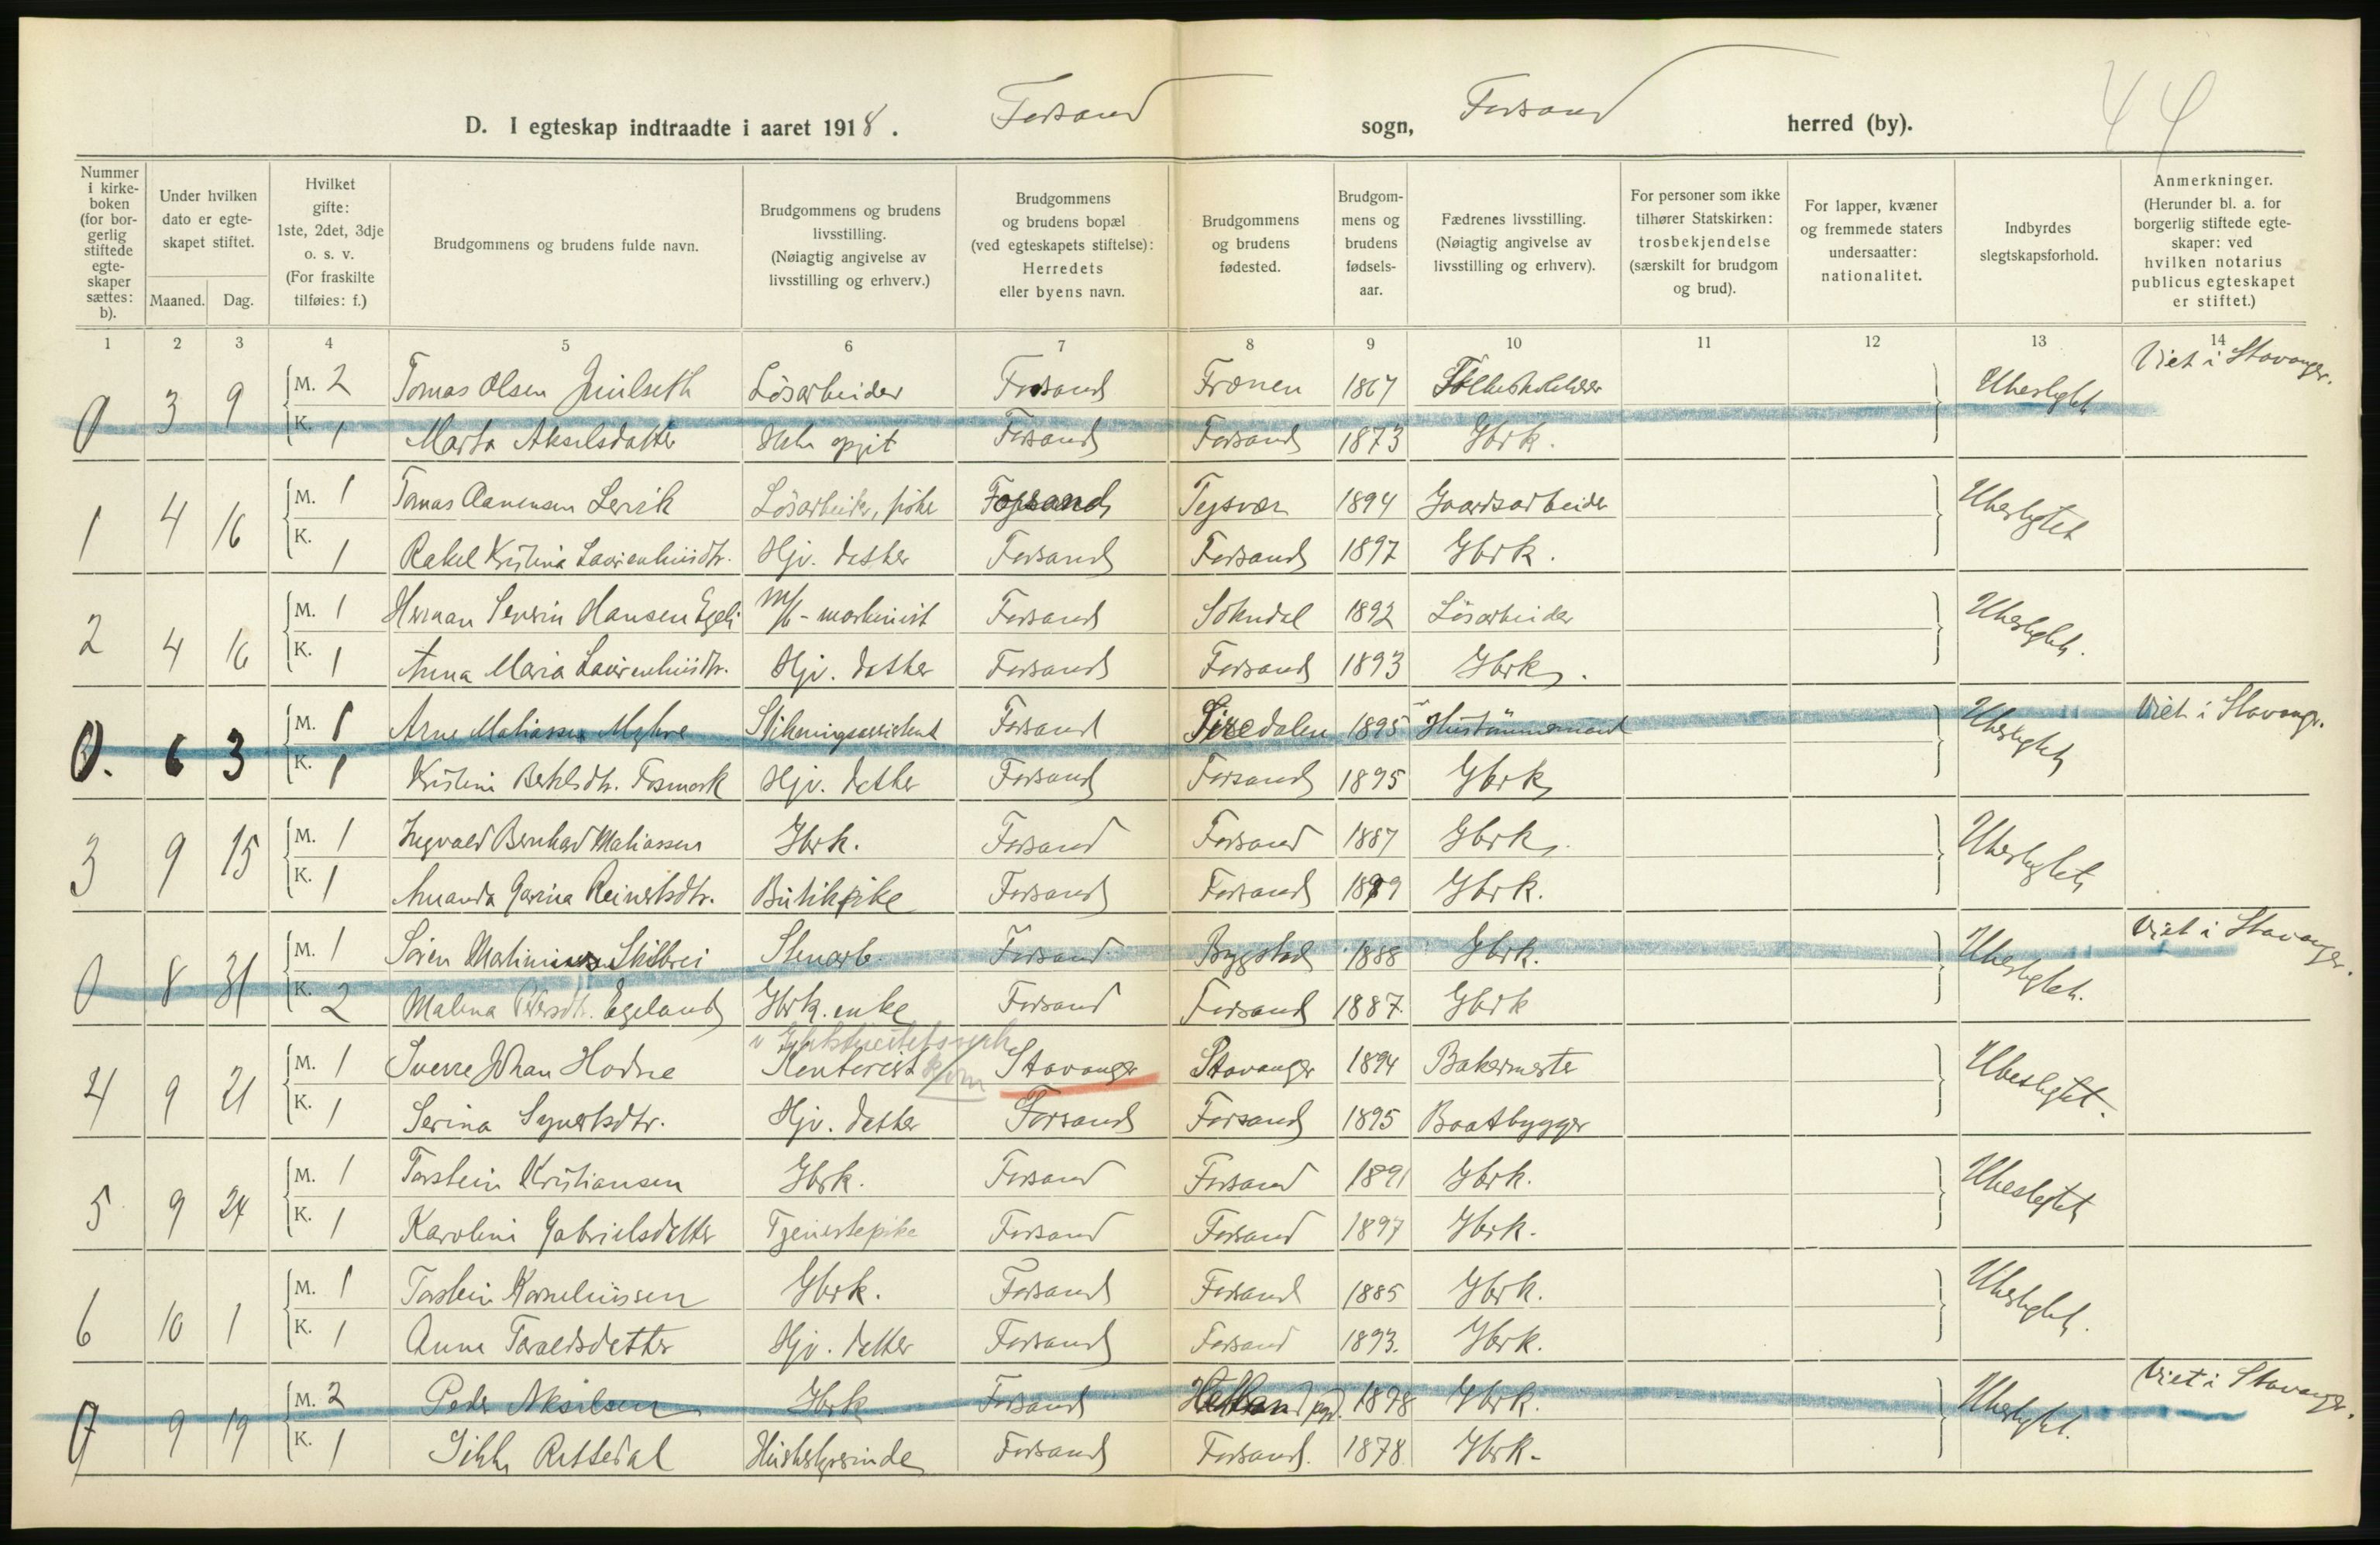 44
D. I egteskap indtraadte i aaret 1918. Forsand sogn, Forsand herred (by).
Nummer i kirke-boken (for bor-gerlig stiftede egte-skaper sættes: b).
Under hvilken dato er egte-skapet stiftet.
Maaned. Dag.
Hvilket gifte: 1ste, 2det, 3dje o. s. v. (For fraskilte tilføies: f.)
Brudgommens og brudens fulde navn.
Brudgommens og brudens livsstilling. (Nøiagtig angivelse av livsstilling og erhverv.)
Brudgommens og brudens bopæl (ved egteskapets stiftelse): Herredets eller byens navn.
Brudgommens og brudens fødested.
Brudgom-mens og brudens fødsels-aar.
Fædrenes livsstilling. (Nøiagtig angivelse av livsstilling og erhverv).
For personer som ikke tilhører Statskirken: trosbekjendelse (særskilt for brudgom og brud).
For lapper, kvæner og fremmede staters undersaatter: nationalitet.
Indbyrdes slegtskapsforhold.
Anmerkninger. (Herunder bl. a. for borgerlig stiftede egte-skaper: ved hvilken notarius publicus egteskapet er stiftet.)
1 2 3 4 5 6 7 8 9 10 11 12 13 14
0 3 9 M. 2 Tomas Olsen Løsarbeider Forsand Frænen 1867 Ubeslegtet Viet i Stavanger.
K. 1 Marta Akselsdatter Forsand Forsand 1873 Gbrk.
1 4 16 M. 1 Tomas Aanensen Lervik Løsarbeider, Forsand Tysvær 1894 Gaardsarbeider Ubeslegtet
K. 1 Rakel Kristina Laurentiusdtr. Hjv. datter Forsand Forsand 1897 Gbrk.
2 4 16 M. 1 Herman Severin Hansen Egeli M/k-maskinist Forsand Sokndal 1892 Løsarbeider Ubeslegtet.
K. 1 Anna Maria Laurentiusdtr. Hjv. datter Forsand Forsand 1893 Gbrk.
0. 6 3 M. 1 Arne Matiassen Myhre Stikningsassistent Forsand Siredalen 1895 Hustømmermand Ubeslegtet Viet i Stavanger.
K. 1 Kristine Bertelsdtr. Fosmark Hjv. datter Forsand Forsand 1895 Gbrk.
3 9 15 M. 1 Ingvald Bernhard Matiassen Gbrk. Forsand Forsand 1887 Gbrk. Ubeslegtet
K. 1 Amanda Garina Reinertsdtr. Butikpike Forsand Forsand 1899 Gbrk.
0 8 31 M. 1 Søren Martinius Skilbrei Stenarb. Forsand Bygstad 1888 Gbrk. Ubeslegtet. Viet i Stavanger.
K. 2 Malena Pedersdtr. Egeland Gbrk. enke Forsand Forsand 1887 Gbrk
v. Elektricitetsverk
4 9 21 M. 1 Sverre Johan Hodne Kontorist Stavanger Stavanger 1894 Bakermester Ubeslegtet.
K. 1 Serina Sigvertsdtr. Hjv. datter Forsand Forsand 1895 Baatbygger
5 9 24 M. 1 Torstein Kristiansen Gbrk. Forsand Forsand 1891 Gbrk. Ubeslegtet
K. 1 Karoline Gabrielsdatter Tjenestepike Forsand Forsand 1897 Gbrk.
6 10 1 M. 1 Torstein Korneliussen Gbrk. Forsand Forsand 1885 Gbrk. Ubeslegtet.
K. 1 Anna Taraldsdatter Hjv. datter Forsand Forsand 1893. Gbrk.
0 9 19 M. 2 Peder Akselsen Gbrk Forsand Hetland pgd. 1878 Gbrk. Ubeslegtet. Viet i Stavanger.
K. 1 Sikke Rettedal Husholderinde Forsand Forsand. 1878 Gbrk.